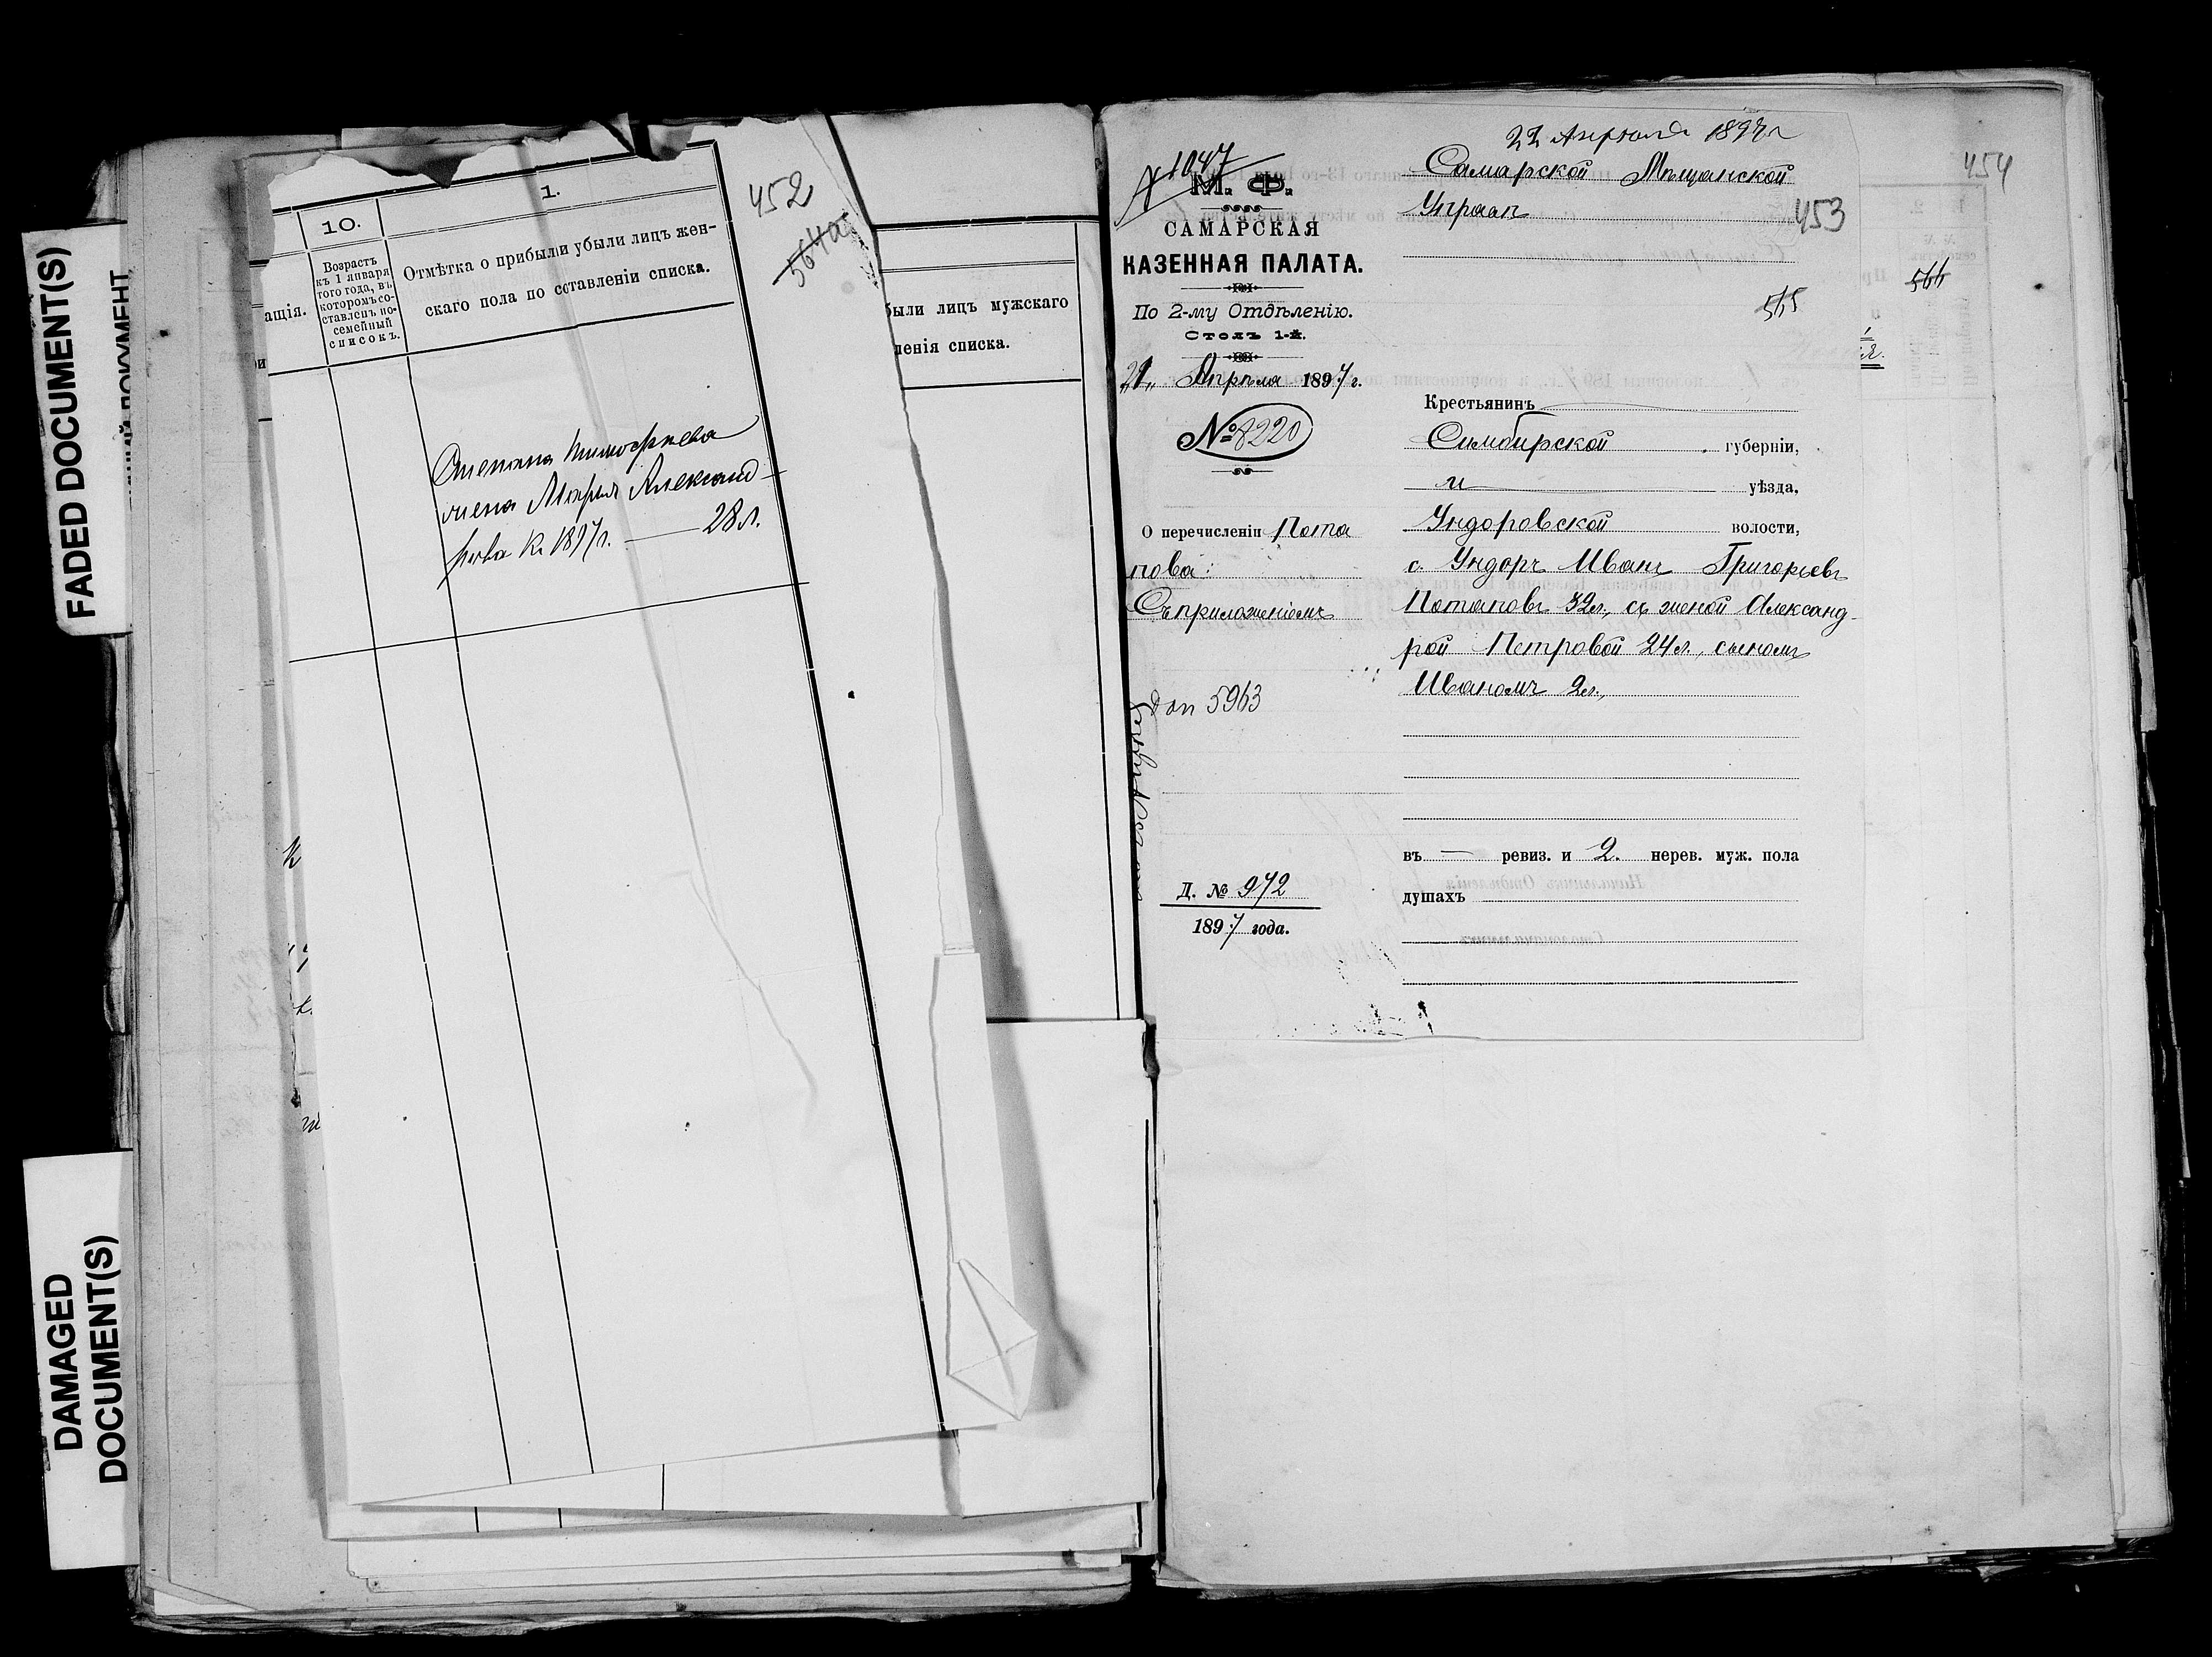 FADED DOCUMENT(S)
DAMAGED
DOCUMENT(S)
452
564а
10.
1.
ащія.
Возрастъ
къ 1 января
того года, въ
которомъ со-
ставленъ по-
семейный
списокъ.
Отмѣтка о прибыли убыли лицъ жен-
скаго пола по составленіи списка.
Степана Тимофѣева
жена Марья Александ-
рова къ 1897г. — 28 л.
были лицъ мужскаго
ленія списка.
№ 1047
М. Ф.
САМАРСКАЯ
КАЗЕННАЯ ПАЛАТА.
По 2-му Отдѣленію.
Столъ 1-й.
„21„ Апрѣля 1897 г.
№ 8220
О перечисленіи Пота
пова:
Съ приложеніемъ
5963
Д. № 972
1897 года.
22 Апрѣля 1897 г
Самарской Мѣщанской
Управѣ
453
565
Крестьянинъ
Симбирской губерніи,
и уѣзда,
Ундоровской волости,
с. Ундоръ Иванъ Григорьевъ
Потаповъ 32 л., съ женой Александ-
рой Петровой 24 л., сыномъ
Иваномъ 2 л.,
въ — ревиз. и 2. нерев. муж. пола
душахъ
454
566